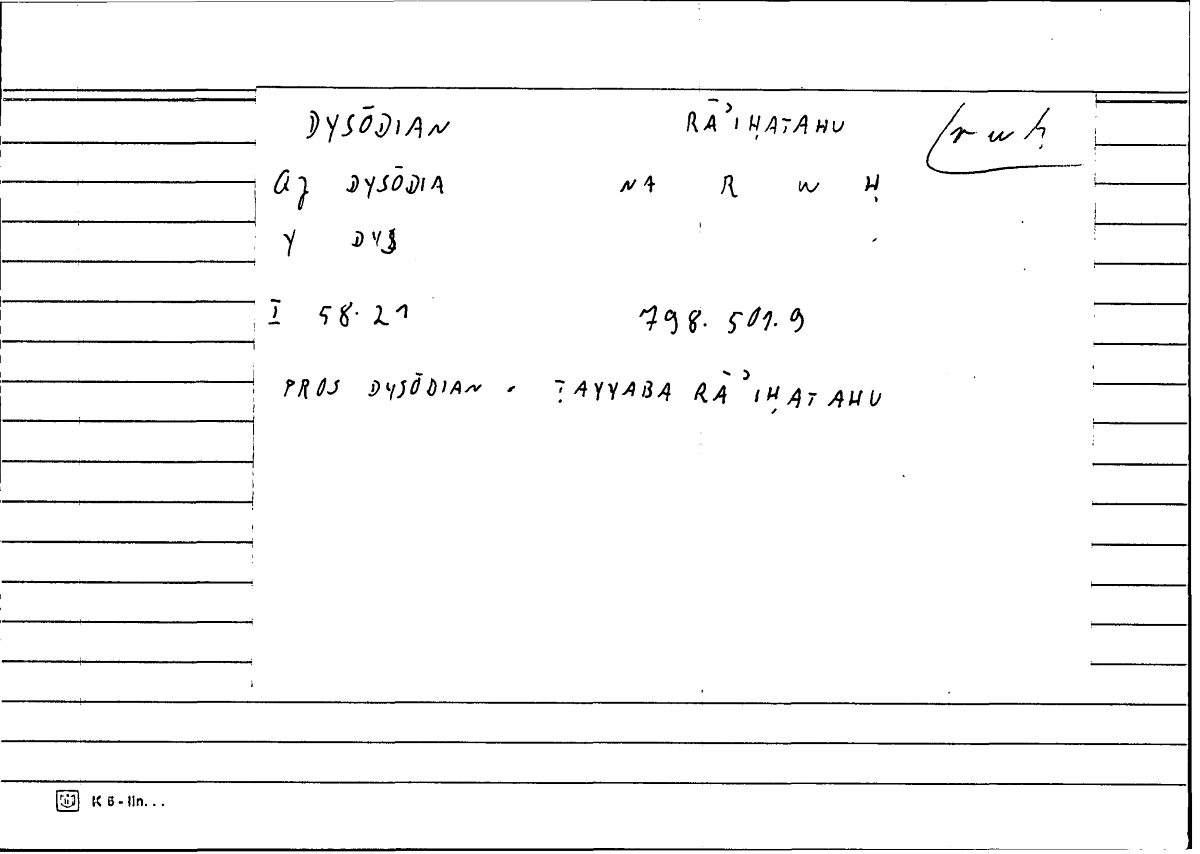 DYSŌDIAN RĀʾIḤATAHU r w ḥ
az DYSŌDIA NA R W Ḥ
Y DYS
I 58.21 798.501.9
PROS DYSŌDIAN . ṬAYYABA RĀʾIḤATAHU
K 6 - lin...